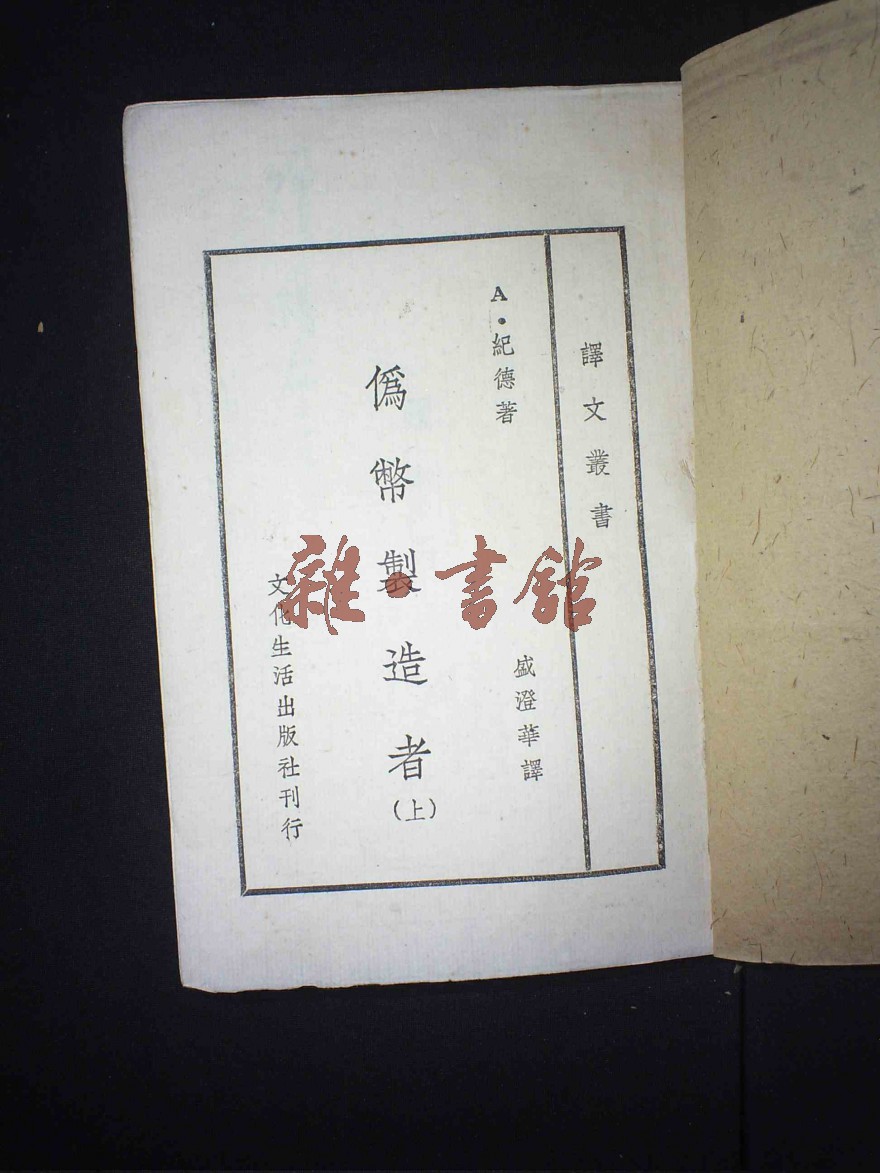 譯文叢書
A·紀德著
盛澄華譯
僞幣製造者
(上)
文化生活出版社刊行
雜·書館